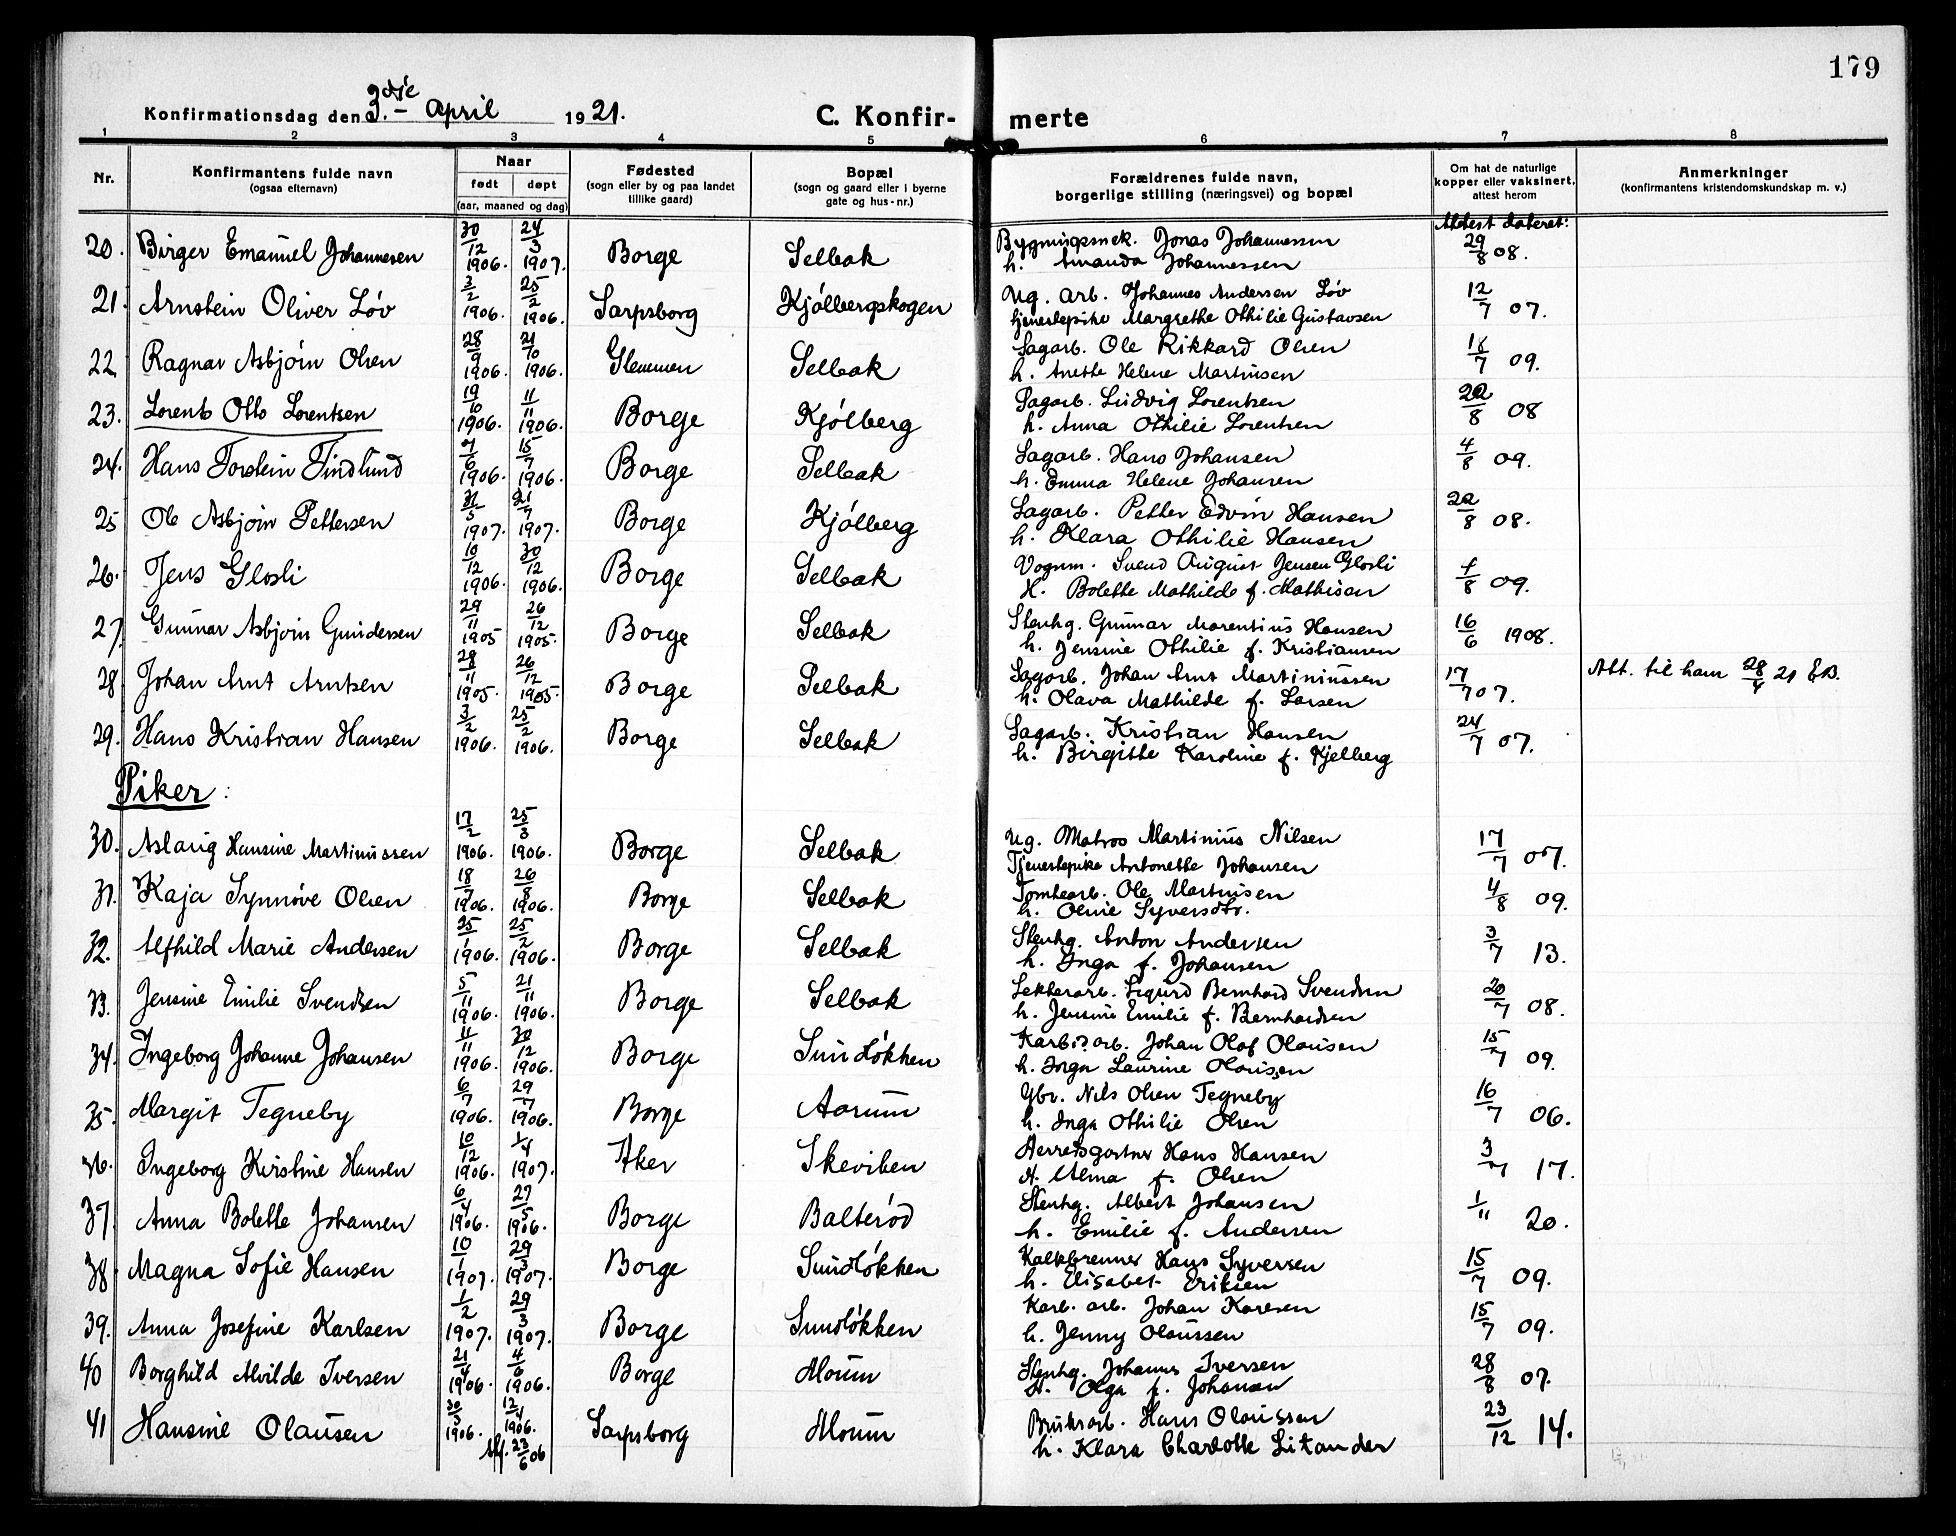 179
Konfirmationsdag den 3.die April 1921.
C. Konfir- merte
1 2 3 4 5 6 7 8
Nr.
Konfirmantens fulde navn
(ogsaa efternavn)
Naar
født døpt
(aar, maaned og dag)
Fødested
(sogn eller by og paa landet
tillike gaard)
Bopæl
(sogn og gaard eller i byerne
gate og hus-nr.)
Forældrenes fulde navn,
borgerlige stilling (næringsvei) og bopæl
Om hat de naturlige
kopper eller vaksinert,
attest herom
Anmerkninger
(konfirmantens kristendomskundskap m. v.)
Attest dateret:
20. Birger Emanuel Johannesen 30/12 1906. 24/3 1907. Borge Selbak Bygningssnek. Jonas Johannessen 29/8 08.
h. Amanda Johannessen
21. Arnstein Oliver Løv 3/2 1906. 25/2 1906. Sarpsborg Kjølbergskogen Ug. arb. Johannes Andersen Løv 12/7 07.
tjenestepike Margrethe Othilie Gustavsen
22 Ragnar Asbjørn Olsen 28/9 1906. 21/10 1906. Glemmen Selbak Sagarb. Ole Rikkard Olsen 18/7 09.
h. Anette Helene Martinsen
23. Lorents Otto Lorentsen 19/10 1906. 11/11 1906. Borge Kjølberg Sagarb. Ludvig Lorentsen 8 08
h. Anna Othilie Lorentsen
24. Hans Torstein Findlund 7/6 1906. 15/7 1906. Borge Selbak Sagarb. Hans Johansen 4/8 09.
h. Emma Helene Johansen
25 Ole Asbjørn Pettersen 5 1907. 21/7 1907. Borge Kjølberg Sagarb. Petter Edvin Hansen 8 08.
h. Klara Othilie Hansen
26. Jens Glosli 10/12 1906. 30/12 1906. Borge Selbak Vognm. Svend August Jensen Glosli 8 09.
H. Bolette Mathilde f. Mathisen
27. Gunnar Asbjørn Gundersen 29/11 1905 26/12 1905. Borge Selbak Stenhg. Gunnar Marentius Hansen 16/6 1908.
h. Jensine Othilie f. Kristiansen
28 Johan Arnt Arntsen 11 1905. 26/12 1905. Borge Selbak Sagarb. Johan Arnt Martiniussen 17/7 07. Att. til ham 28/4 21 EB.
h. Olava Mathilde f. Larsen
29. Hans Kristian Hansen 3/2 1906. 25/2 1906. Borge Selbak Sagarb. Kristian Hansen 24/7 07.
h. Birgitte Karoline f. Kjelberg
Piker:
30. Aslaug Hansine Martinussen 17/2 1906. 25/3 1906. Borge Selbak Ug. Matros Martinius Nilsen 17/7 07.
Tjenestepike Antonette Johansen
31. Kaja Synnøve Olsen 18/7 1906. 26/8 1906. Borge Selbak Tomtearb. Ole Martinsen 4/8 09.
h. Oline Syversdtr.
32. Alfhild Marie Andersen 25/1 1906. 25/2 1906. Borge Selbak Stenhg. Anton Andersen 3/7 13.
h. Inga f. Johansen
33. Jensine Emilie Svendsen 5/11 1906. 21/11 1906. Borge Selbak Lekterarb. Sigurd Bernhard Svendsen 20/7 08.
h. Jensine Emilie f. Bernhardsen
34. Ingeborg Johanne Johansen 11/11 1906. 30/12 1906. Borge Sundløkken Karbidarb. Johan Olaf Olausen 15/7 09.
h. Inga Laurine Olausen
35. Margit Tegneby 6/7 1906. 29/7 1906. Borge Aarum Gbr. Nils Olsen Tegneby 16/7 06.
h. Inga Othilie Olsen
36. Ingeborg Kirstine Hansen 10/12 1906. 1/4 1907. Aker Skeviken Herredsgartner Hans Hansen 3/7 17.
H. Alma f. Olsen
37. Anna Bolette Johansen 6/4 1906. 27/5 1906. Borge Balterød Stenhg. Albert Johansen 1/11 20.
h. Emilie f. Andersen
38. Magna Sofie Hansen 10/1 1907. 29/3 1907. Borge Sundløkken Kalkbrenner Hans Syversen 15/7 09.
h. Elisabet Eriksen
39. Anna Josefine Karlsen 1/2 1907. 29/3 1907. Borge Sundløkken Karb. arb. Johan Karlsen 15/7 09.
h. Jenny Olaussen
40 Borghild Alvilde Iversen 21/4 1906. 4/6 1906. Borge Moum Stenhg. Johannes Iversen 28/8 07.
H. Olga f. Johansen
41 Hansine Olausen 30/3 1906. 12/4 1906. Sarpsborg Moum Bruksarb. Hans Olaussen 23/12 14.
23/6 06 h. Klara Charlotte Litander